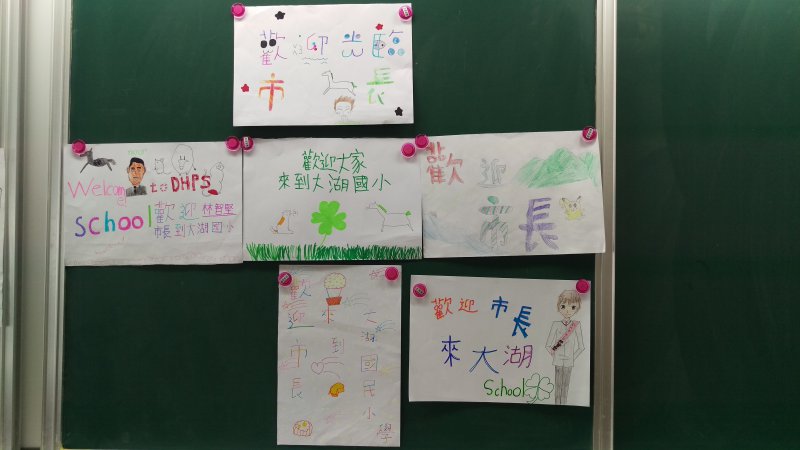 歡迎光臨
市長
Welcome! to DHPS
school 歡迎林智堅
市長到大湖國小
歡迎大家
來到大湖國小
歡迎
市長
歡迎市長
來到
大湖國民小學
歡迎市長
來大湖
School